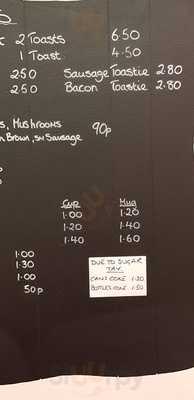 2 Toasts 6.50
1 Toast 4.50
2.50 Sausage Toastie 2.80
2.50 Bacon Toastie 2.80
Mushrooms
Brown, Sausage 90p
Cup Mug
1.00 1.20
1.20 1.40
1.40 1.60
1.00
1.30
1.00
50p
DUE TO SUGAR
TAX
CANS COKE 1.30
BOTTLES COKE 1.50